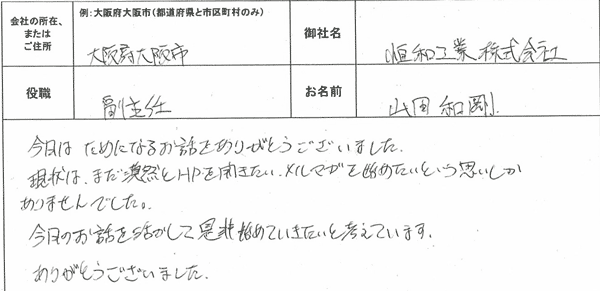 会社の所在、
または
ご住所
例：大阪府大阪市（都道府県と市区町村のみ）
大阪府大阪市
御社名
恒和工業株式会社
役職
副主任
お名前
山田和剛
今日は ためになるお話をありがとうございました.
現状は、まだ漠然とHPを開きたい.メルマガを始めたいという思いしか
ありませんでした。
今日のお話を活かして是非始めていきたいと考えています.
ありがとうございました.